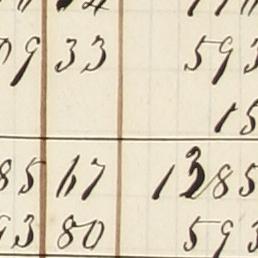 09 33 593
15
85 67 1385
93 80 593